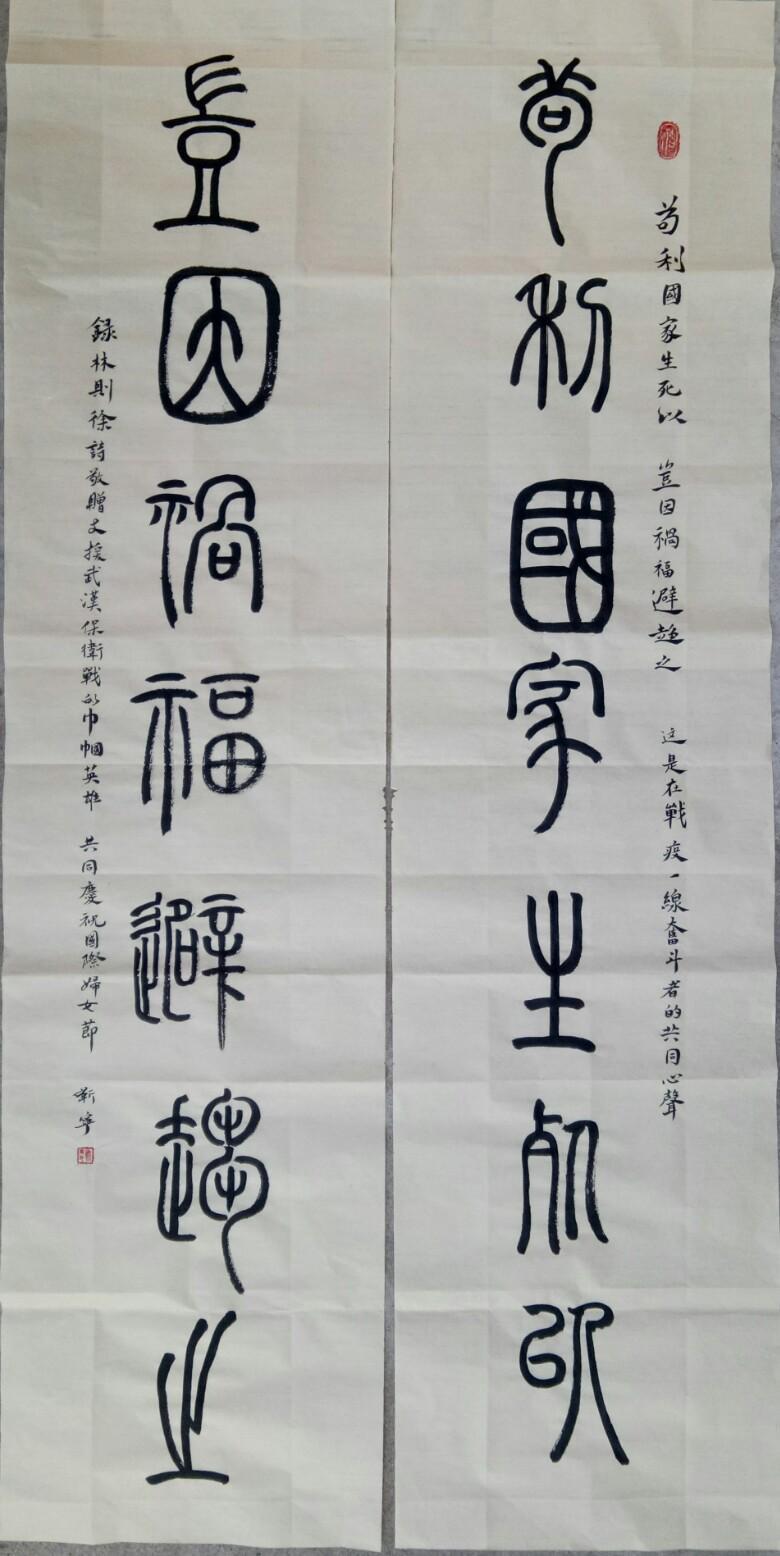 苟利國家生死以 豈因禍福避趨之 这是在戰疫一線奮斗者的共同心聲
苟利國家生死以
豈因禍福避趨之
録林則徐詩敬贈支援武漢保衛戰的巾幗英雄 共同慶祝國際婦女節 靳寧